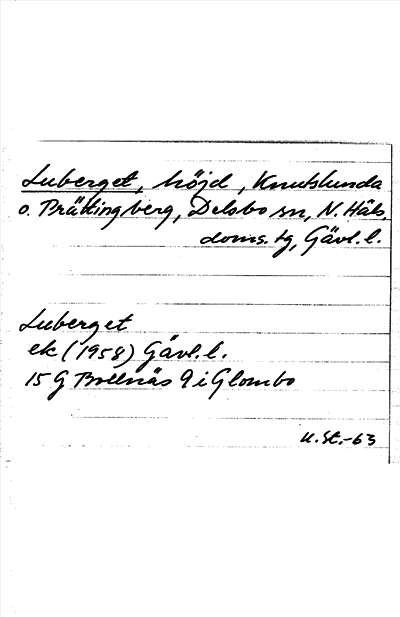 Luberget, höjd, Knutslunda
o. Prästingberg, Delsbo sn, N. Häls.
doms. tg, Gävl. l.
Luberget
ek (1958) Gävl. l.
15 G Bollnäs 9 i Glombo
U. St. -63